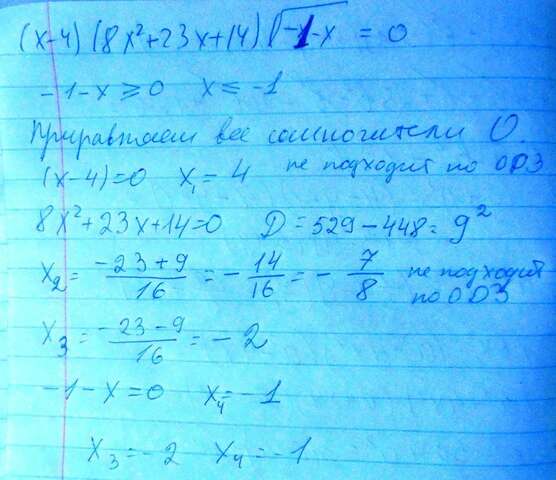 (x-4)(8x²+23x+14)√(-1-x) = 0
-1-x ≥ 0 x ≤ -1
Приравняем все сомножители 0.
(x-4)=0 x₁ = 4 не подходит по ОДЗ
8x²+23x+14=0 D = 529-448 = 9²
x₂ = (-23+9)/16 = -14/16 = -7/8 не подходит по ОДЗ
x₃ = (-23-9)/16 = -2
-1-x=0 x₄=-1
x₃=-2 x₄=-1